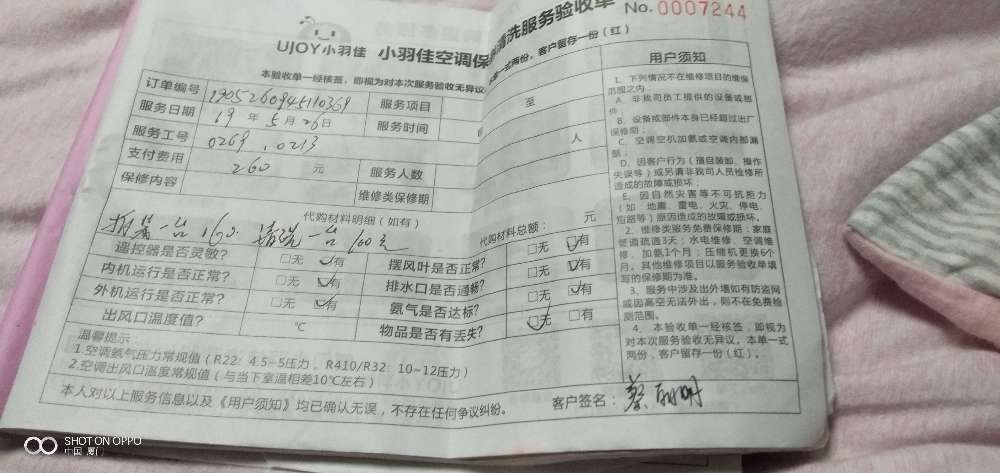 No. 0007244
UJOY小羽佳 小羽佳空调保 清洗服务验收单
本验收单一经核签，即视为对本次服务验收无异议 单一式两份，客户留存一份（红）
订单编号 1905260945110369 服务项目
服务日期 19 年 5 月 26 日 服务时间 至
服务工号 0269，0213 人
支付费用 260 元 服务人数
保修内容 维修类保修期
代购材料明细（如有） 代购材料总额： 元
拆装一台160 清洗一台100元
遥控器是否灵敏？ □无 □有 摆风叶是否正常？ □无 □有
内机运行是否正常？ □无 □有 排水口是否通畅？ □无 □有
外机运行是否正常？ □无 □有 氨气是否达标？ □无 □有
出风口温度值？ ℃ 物品是否有丢失？ □无 □有
温馨提示：
1.空调氨气压力常规值（R22：4.5~5压力，R410/R32：10~12压力）
2.空调出风口温度常规值（与当下室温相差10℃左右）
本人对以上服务信息以及《用户须知》均已确认无误，不存在任何争议纠纷。 客户签名：蔡
用户须知
1、下列情况不在维修项目的维保
范围之内：
A、非我司员工提供的设备或部
件；
B、设备或部件本身已经超过出厂
保修期；
C、空调空机加氨或空调内部漏
氨；
D、因客户行为（擅自装卸、操作
失误等）或另请非我司人员检修所
造成的故障或损坏；
E、因自然灾害等不可抗拒力
（如：地震、雷电、火灾、停电、
短路等）原因造成的故障或损坏。
2、维修类服务免费保修期：家庭
管道疏通3天；水电维修、空调维
修、加氨1个月；压缩机更换6个
月。其他维修项目以服务验收单填
写的保修期为准。
3、服务中涉及出外墙如有防盗网
或因高空无法外出，则不在免费检
测范围。
4、本验收单一经核签，即视为
对本次服务验收无异议。本单一式
两份，客户留存一份（红）。
SHOT ON OPPO
中国 厦门